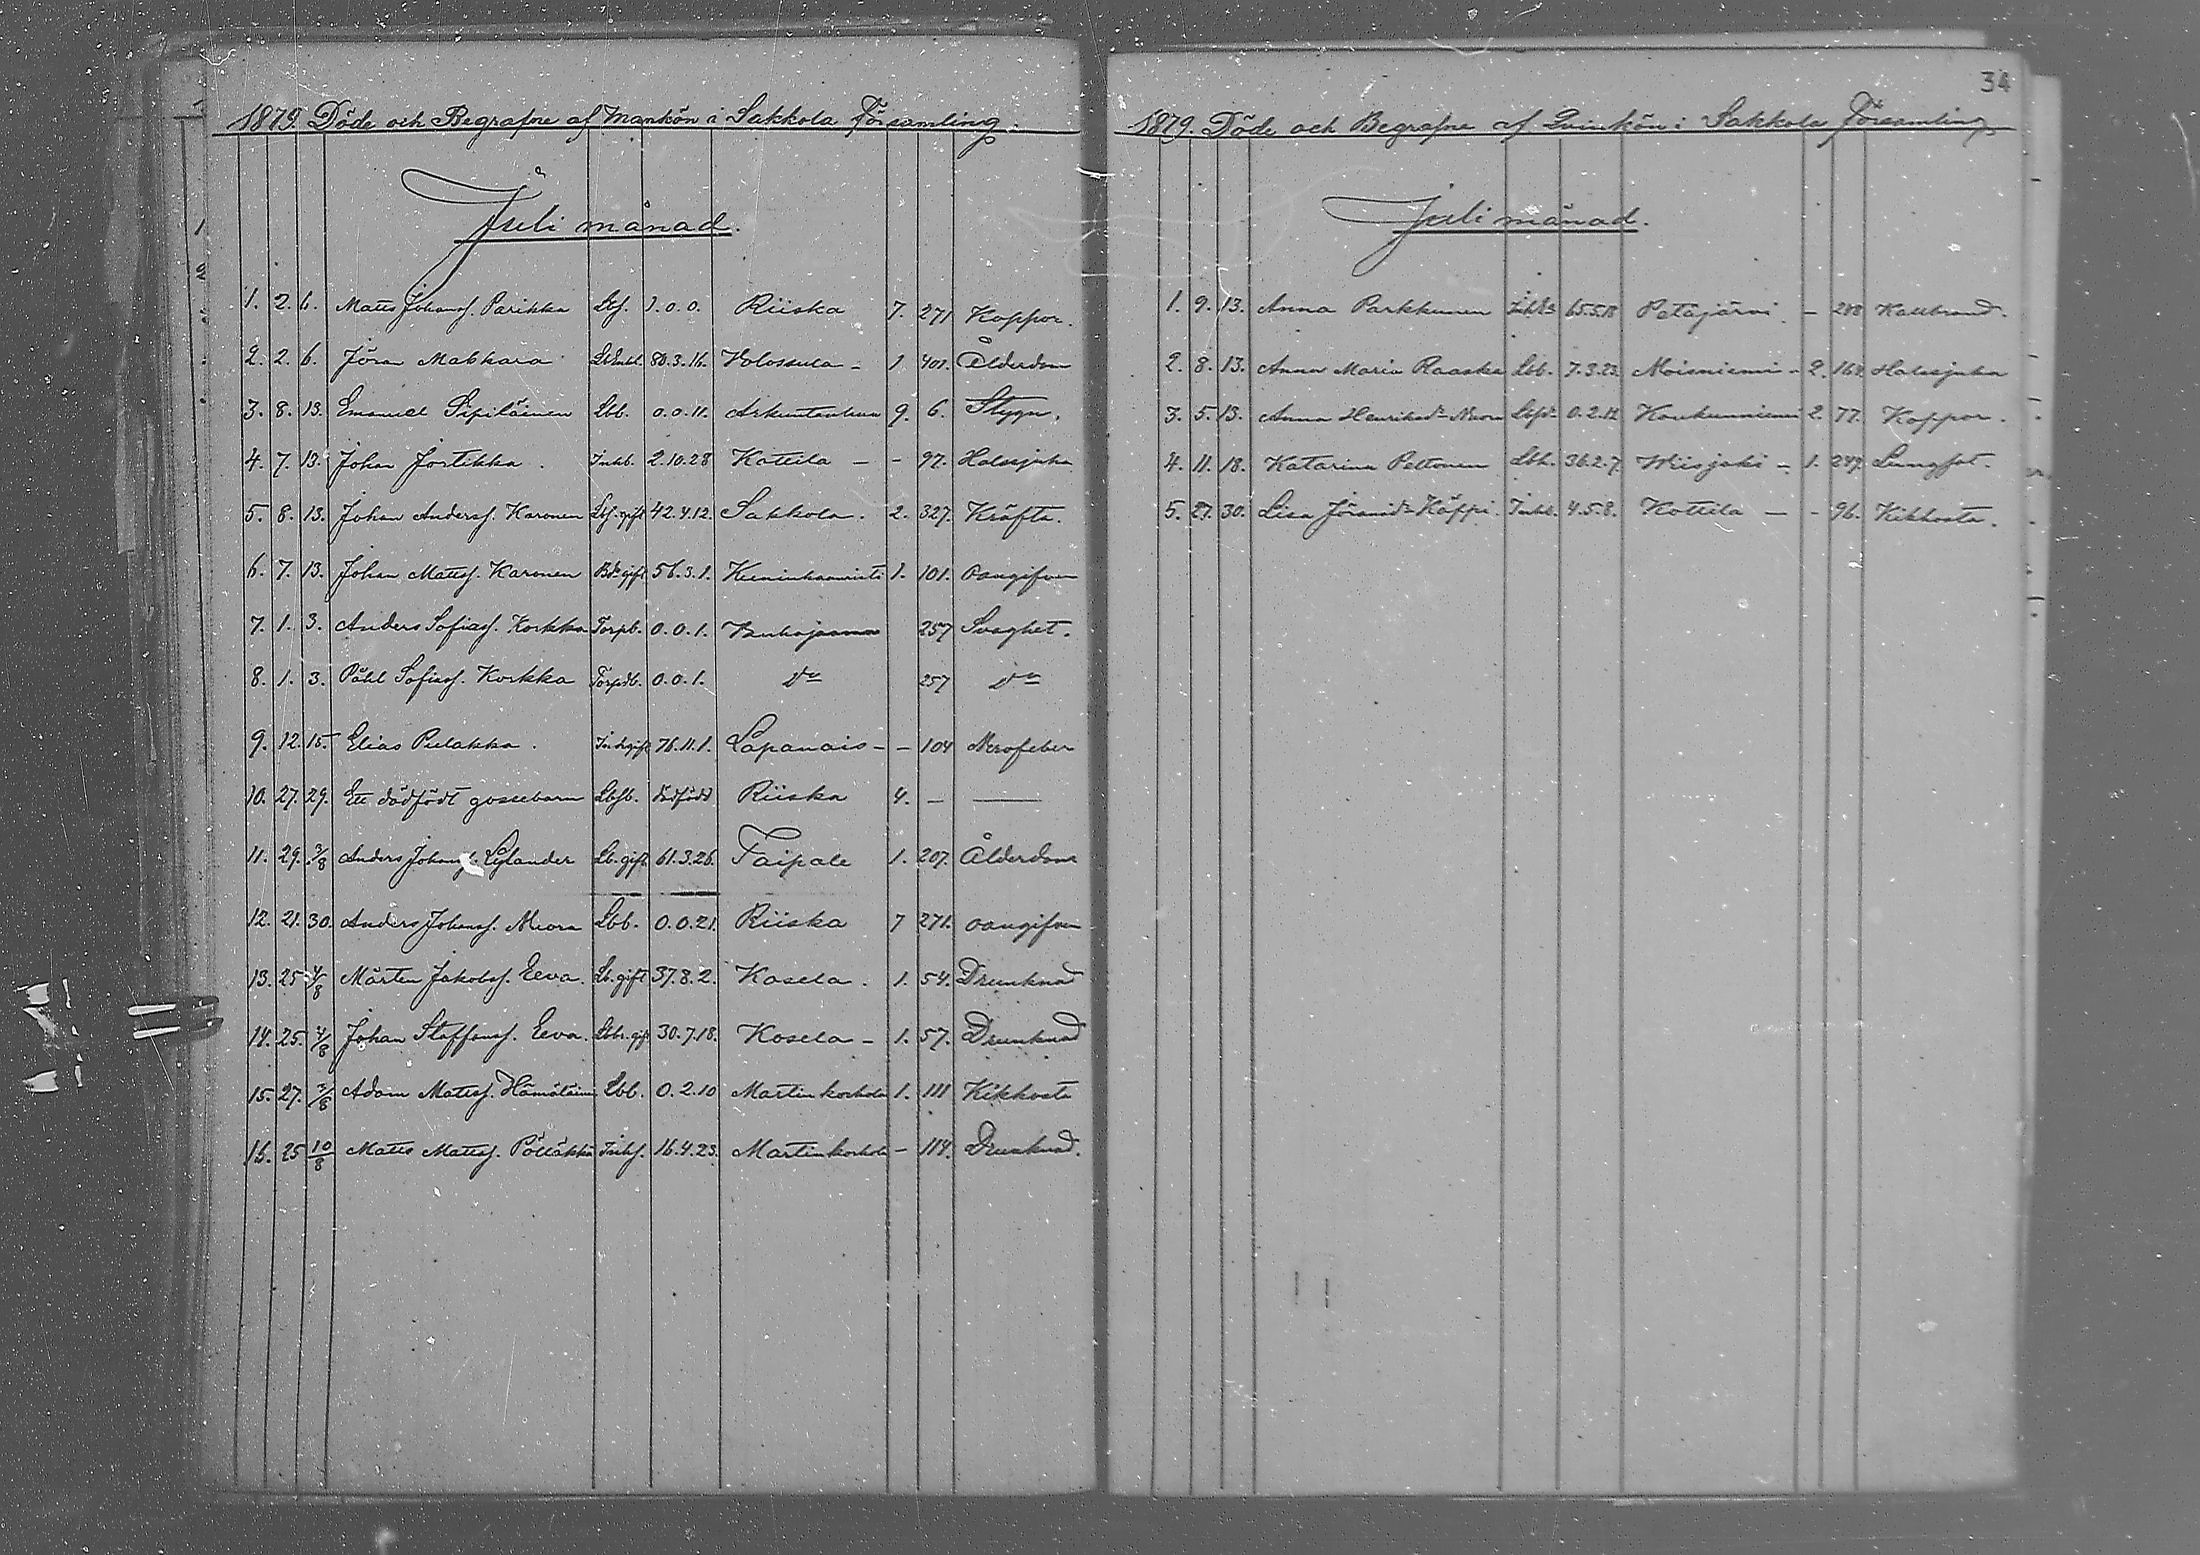 1879. Döde och Begrafne af Mankön i Sakkola Församling.
Juli månad.
1. 2. 6. Matts Johansf. Parikka Lbf. 1.0.0. Riiska 7. 271 Koppor.
2. 2. 6. Jöran Makkara 80.3.16. Volossula - 1 401. Ålderdom
3. 8. 13. Emanuel Sipiläinen Lbb. 0.0.11. 9. 6. Stygn.
4. 7. 13. Johan Jortikka. Inhb. 2.10.28 Kottila - - 97. Halssjuka
5. 8. 13. Johan Andersf. Karonen Lbf. gift 42.4.12. Sakkola. 2. 327. Kräfta.
6. 7. 13. Johan Mattsf. Karonen gift 56.3.1. 1. 101. oangifven
7. 1. 3. Anders Sofiasf. Korkka Torpb. 0.0.1. 257 Svaghet.
8. 1. 3. Påhl Sofiasf. Korkka 0.0.1. do 257 do
9. 12. 15. Elias Pulakka. 76.11.1. Lapanais - - 104 Nervfeber
10. 27. 29. Ett dödfödt gossebarn Lbfb. dödfödd Riiska 4. - -
11. 29. 3/8 Anders Johansf. Lylander Lb. gift 61.3.26. Taipale 1. 207. Ålderdom
12. 21. 30. Anders Johansf. Lbb. 0.0.21. Riiska 7 271. oangifven
13. 25 4/8 Mårten Jakobsf. Eeva. Lb. gift 37.8.2. Kosela. 1. 54. Drunknad
14. 25. 4/8 Johan Staffansf. Eeva. 30.7.18. Kosela - 1. 57. Drunknad
15. 27. 3/8 Adam Mattsf. Hämäläinen Lbb. 0.2.10 Martinkorhola 1. 111 Kikhosta
16. 25 10/8 Matts Mattsf. Pölläkkä Inhf. 16.4.23. Martinkorhola - 114. Drunknad.
34
1879. Döde och Begrafne af Quinkön i Sakkola Församling
Juli månad.
1. 9. 13. Anna Parkkunen 65.5.18 Petäjärvi. - 208 Kallbrand.
2. 8. 13. Anna Maria Raaska Lbb. 7.3.23. Moisniemi - 2. 164 Halssjuka
3. 5. 13. Anna Henriksdr 0.2.12 Haukuniemi 2. 77. Koppor.
4. 11. 18. Katarina Peltonen Lbh. 36.2.7. - 1. 249. Lungsot.
5. 27. 30. Lisa Jöransdr Käppi. Inhb. 4.5.8. Kottila - - 96. Kikhosta.